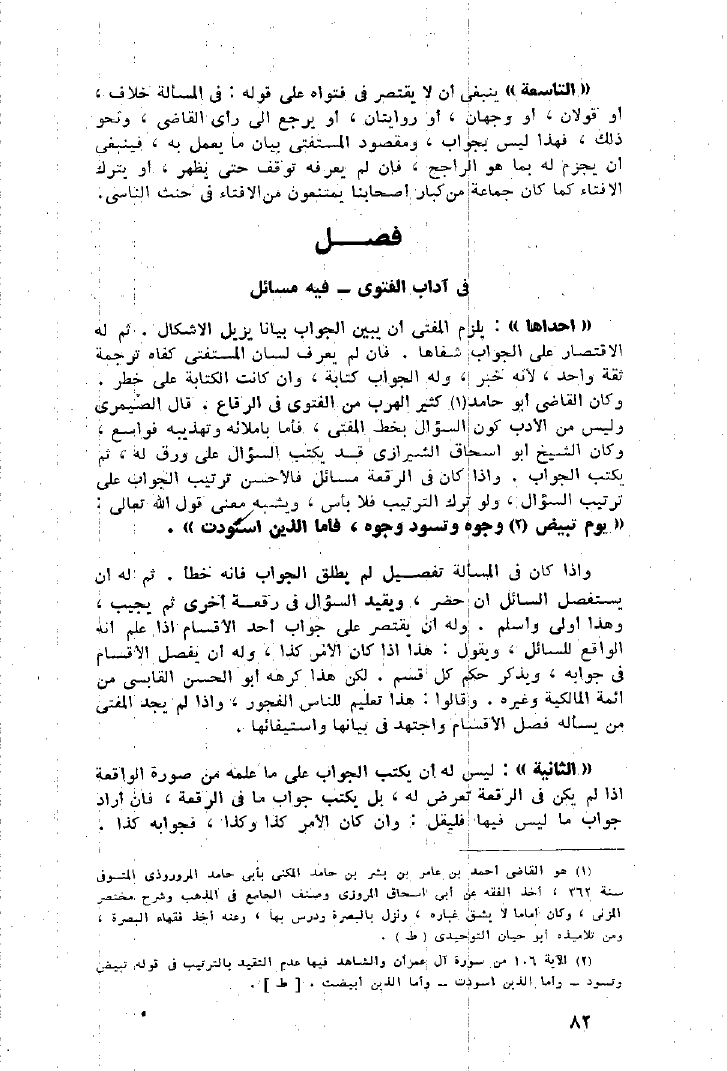 « التاسعة » ينبغى أن لا يقتصر فى فتواه على قوله : فى المسألة خلاف ،
أو قولان ، أو وجهان ، أو روايتان ، أو يرجع الى رأى القاضى ، ونحو
ذلك ، فهذا ليس بجواب ، ومقصود المستفتى بيان ما يعمل به ، فينبغى
أن يجزم له بما هو الراجح ، فان لم يعرفه توقف حتى يظهر ، أو يترك
الافتاء كما كان جماعة من كبار أصحابنا يمتنعون من الافتاء فى حنث الناسى .
فصـــل
فى آداب الفتوى ــ فيه مسائل
« احداها » : يلزم المفتى أن يبين الجواب بيانا يزيل الاشكال . ثم له
الاقتصار على الجواب شفاها . فان لم يعرف لسان المستفتى كفاه ترجمة
ثقة واحد ، لأنه خبر ، وله الجواب كتابة ، وان كانت الكتابة على خطر .
وكان القاضى أبو حامد(١) كثير الهرب من الفتوى فى الرقاع . قال الصيمرى
وليس من الأدب كون السؤال بخط المفتى ، فأما باملائه وتهذيبه فواسع ،
وكان الشيخ أبو اسحاق الشيرازى قد يكتب السؤال على ورق له ، ثم
يكتب الجواب . واذا كان فى الرقعة مسائل فالأحسن ترتيب الجواب على
ترتيب السؤال ، ولو ترك الترتيب فلا بأس ، ويشبه معنى قول الله تعالى :
« يوم تبيض (٢) وجوه وتسود وجوه ، فأما الذين اسودت » .
واذا كان فى المسألة تفصيل لم يطلق الجواب فانه خطأ . ثم له أن
يستفصل السائل ان حضر ، ويقيد السؤال فى رقعة أخرى ثم يجيب ،
وهذا أولى وأسلم . وله أن يقتصر على جواب أحد الأقسام اذا علم أنه
الواقع للسائل ، ويقول : هذا اذا كان الأمر كذا ، وله أن يفصل الأقسام
فى جوابه ، ويذكر حكم كل قسم . لكن هذا كرهه أبو الحسن القابسى من
ائمة المالكية وغيره . وقالوا : هذا تعليم للناس الفجور ، واذا لم يجد المفتى
من يسأله فصل الأقسام واجتهد فى بيانها واستيفائها .
« الثانية » : ليس له أن يكتب الجواب على ما علمه من صورة الواقعة
اذا لم يكن فى الرقعة تعرض له ، بل يكتب جواب ما فى الرقعة ، فان أراد
جواب ما ليس فيها فليقل : وان كان الأمر كذا وكذا ، فجوابه كذا .
(١) هو القاضى أحمد بن عامر بن بشر بن حامد المكنى بأبى حامد المروروذى المتوفى
سنة ٣٦٢ ، أخذ الفقه عن أبى اسحاق المروزى وصنف الجامع فى المذهب وشرح مختصر
المزنى ، وكان اماما لا يشق غباره ، ونزل بالبصرة ودرس بها ، وعنه أخذ فقهاء البصرة ،
ومن تلاميذه أبو حيان التوحيدى ( ط ) .
(٢) الآية ١٠٦ من سورة آل عمران والشاهد فيها عدم التقيد بالترتيب فى قوله تبيض
وتسود ــ وأما الذين اسودت ــ وأما الذين أبيضت . [ ط ] .
٨٢